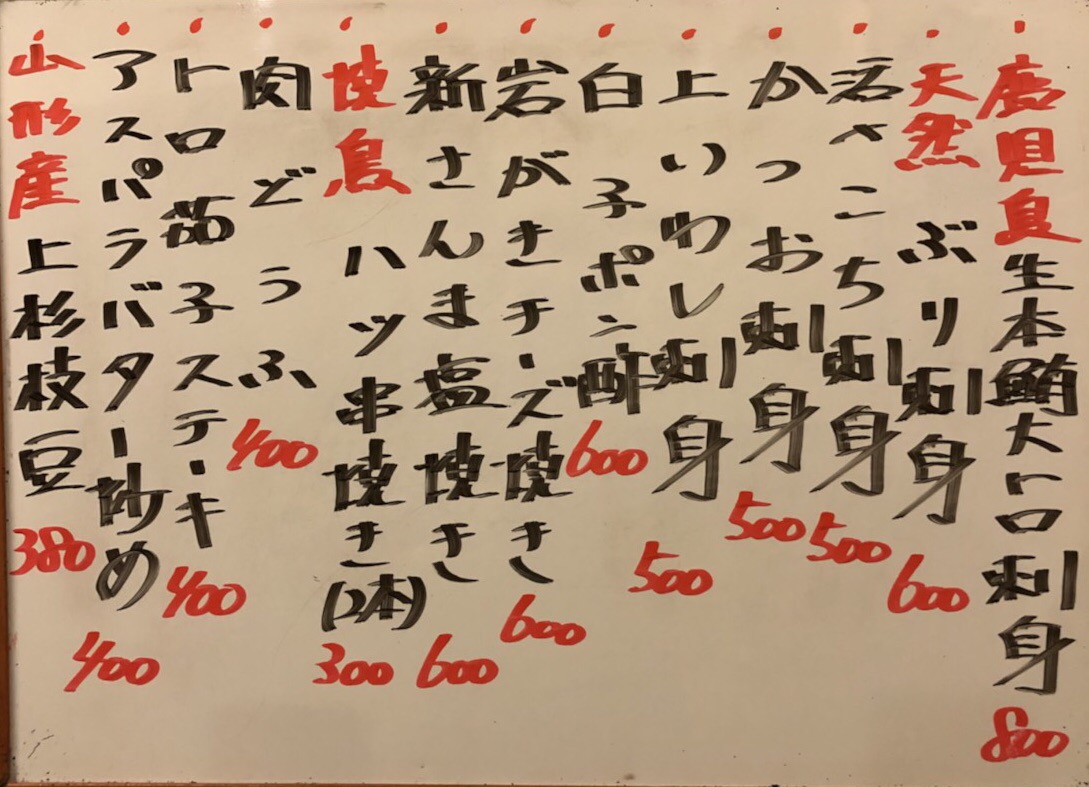 鹿児島生本鮪大トロ刺身 800
天然ぶり刺身 600
活〆こち刺身 500
かつお刺身 500
上いわし刺身 500
白子ポン酢 600
岩がきチーズ焼き 600
新さんま塩焼き 600
焼鳥 ハツ串焼き(2本) 300
肉どうふ 400
トロ茄子ステーキ 400
アスパラバター炒め 400
山形産上杉枝豆 380